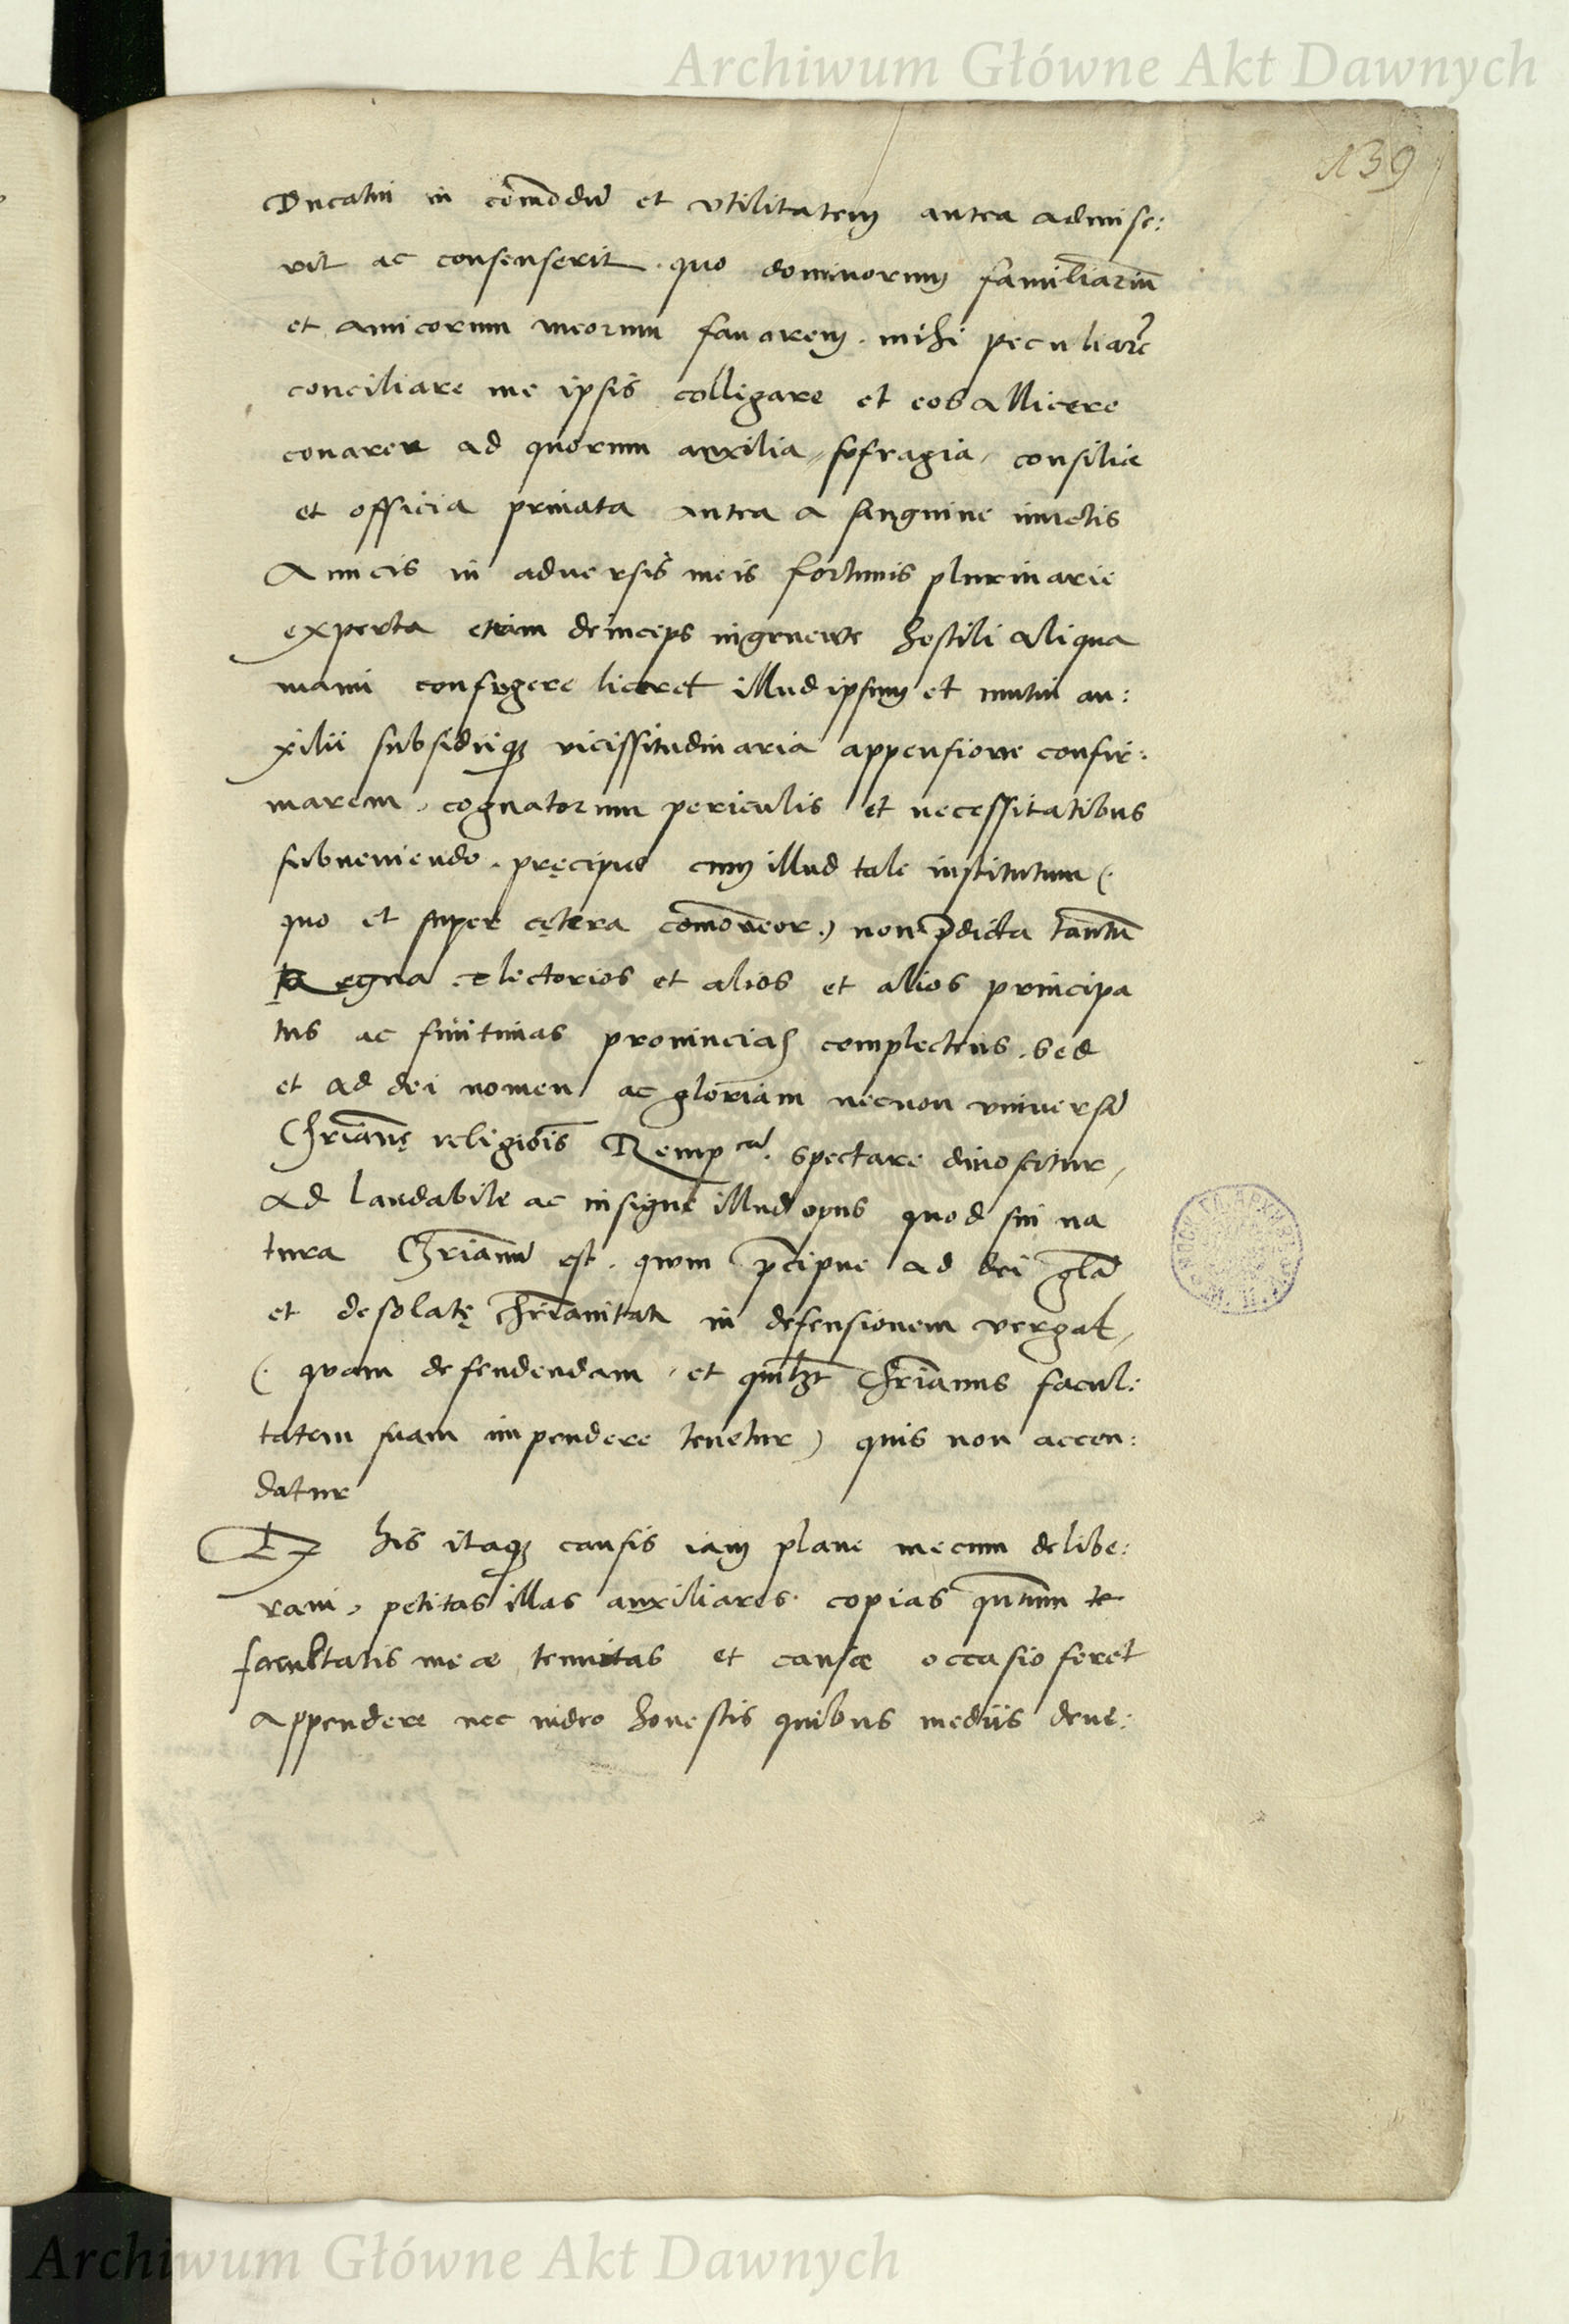 Archiwum Główne Akt Dawnych
139
Ducatui in com̄odū et vtilitatem antea admise:
rit ac consenserit . quo dominorum familiariū
et amicorum meorum fauorem . mihi peculiarē
conciliare me ipsis colligare et eos allicere
conarer ad quorum auxilia, sufragia, consilia
et officia priuata antea a sanguine iunctis
Amicis in aduersis meis fortunis plurinarie
experta etiam deinceps ingruente hostili aliqua
manu confugere liceret illud ipsum et mutui au:
xilii subsidiiq vicissitudinaria appensione confir:
marem . cognatorum periculis et necessitatibus
subueniendo . pręcipue cum illud tale institutum (.
quo et super cętera com̄oueor .) non p̄dicta tantū
Regna electorios et alios et alios principa
tus ac finitimas prouincias complectens . sed
et ad dei nomen ac gloriam necnon vniuersā
Chrianę religiois Remp cā . spectare dinoscitur,
ad laudabile ac insigne illud opus quod sui na
tura Chrianū est . quum p̄cipue ad dei glā
et desolatę chrianitatis in defensionem vergat,
(. quam defendendam, et quilzt chrianus facul:
tatem suam impendere tenetur) quis non accen:
datur
Ex his itaq causis iam plane mecum delibe:
raui, petitas illas auxiliares . copias qntum te
facultatis meæ tenuitas et causæ occasio feret
appendere nec video honestis quibus mediis dene:
Archiwum Główne Akt Dawnych